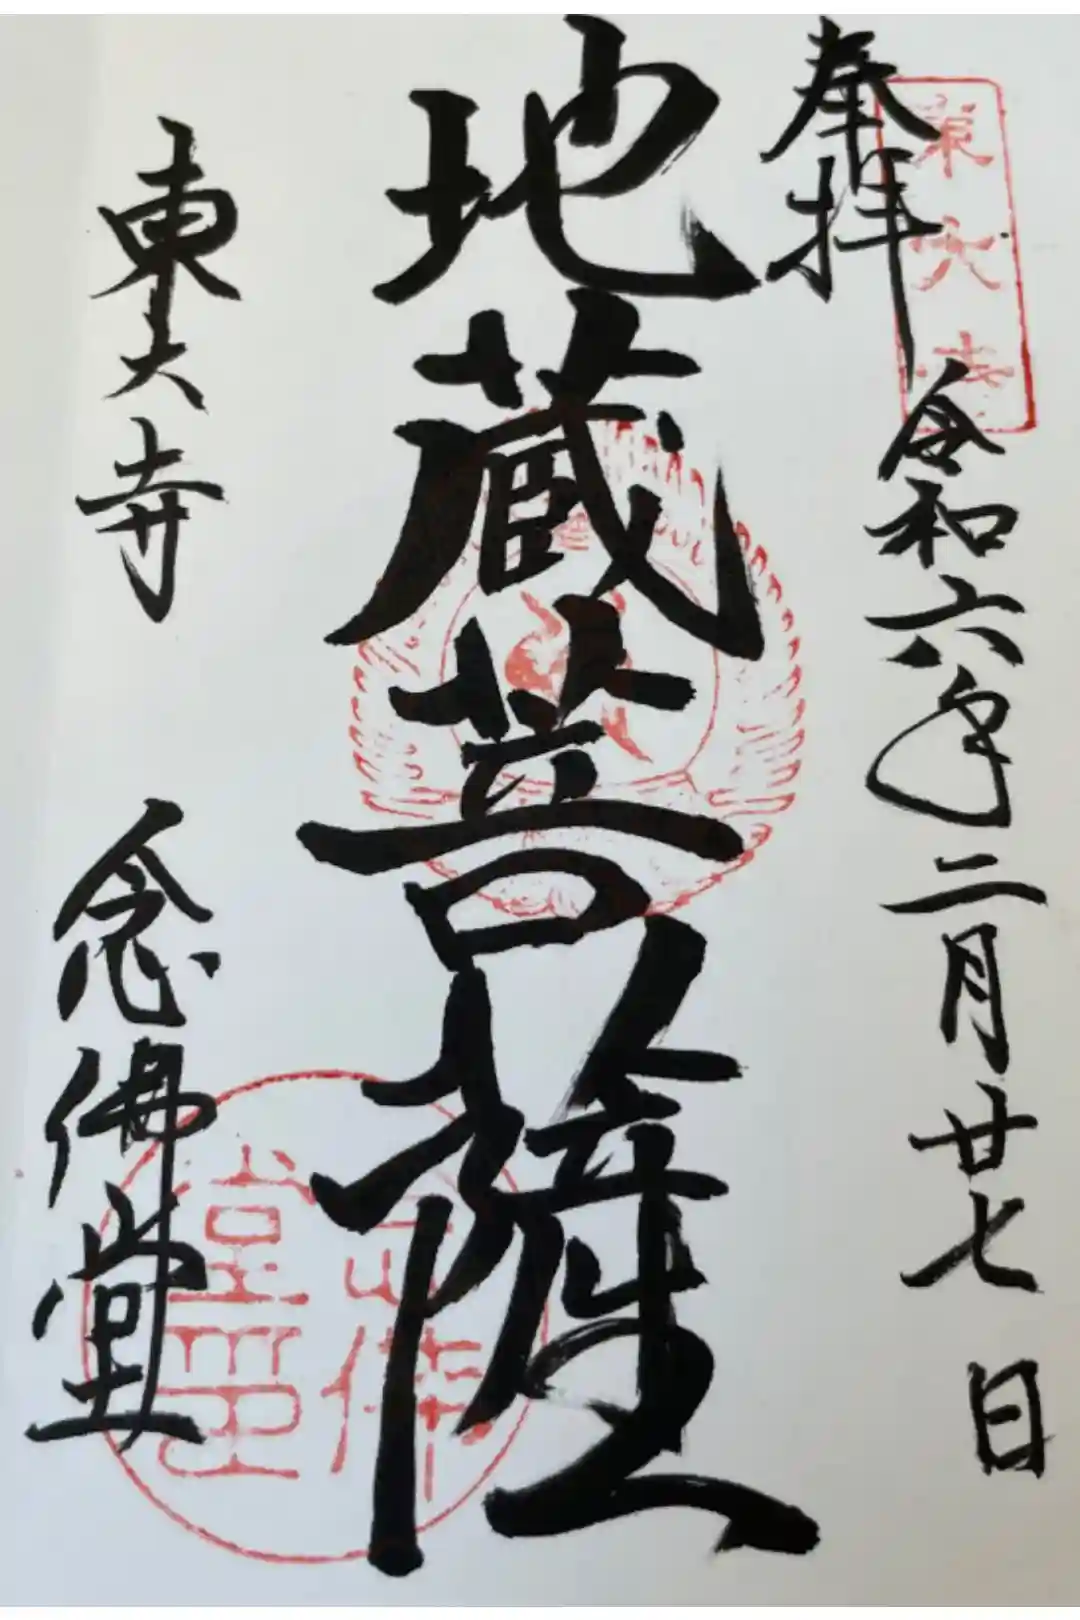 奉拝
東大寺
令和六年二月廿七日
地蔵菩薩
東大寺
念佛堂
念佛堂印